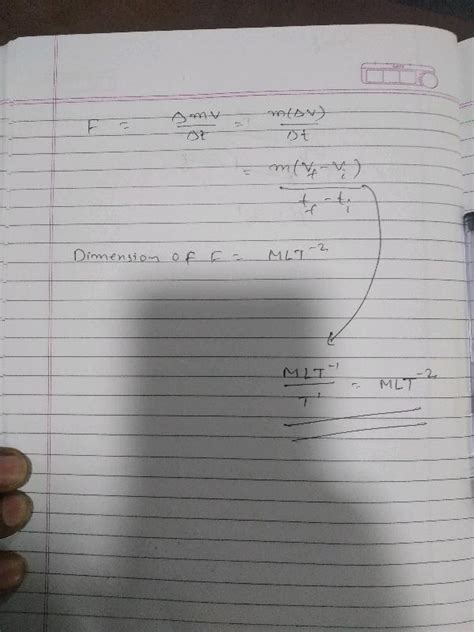 F = ΔmV/Δt = m(ΔV)/Δt
= m(V_f - V_i)/t_f - t_i
Dimension of F = MLT^-2
MLT^-1/T^1 = MLT^-2